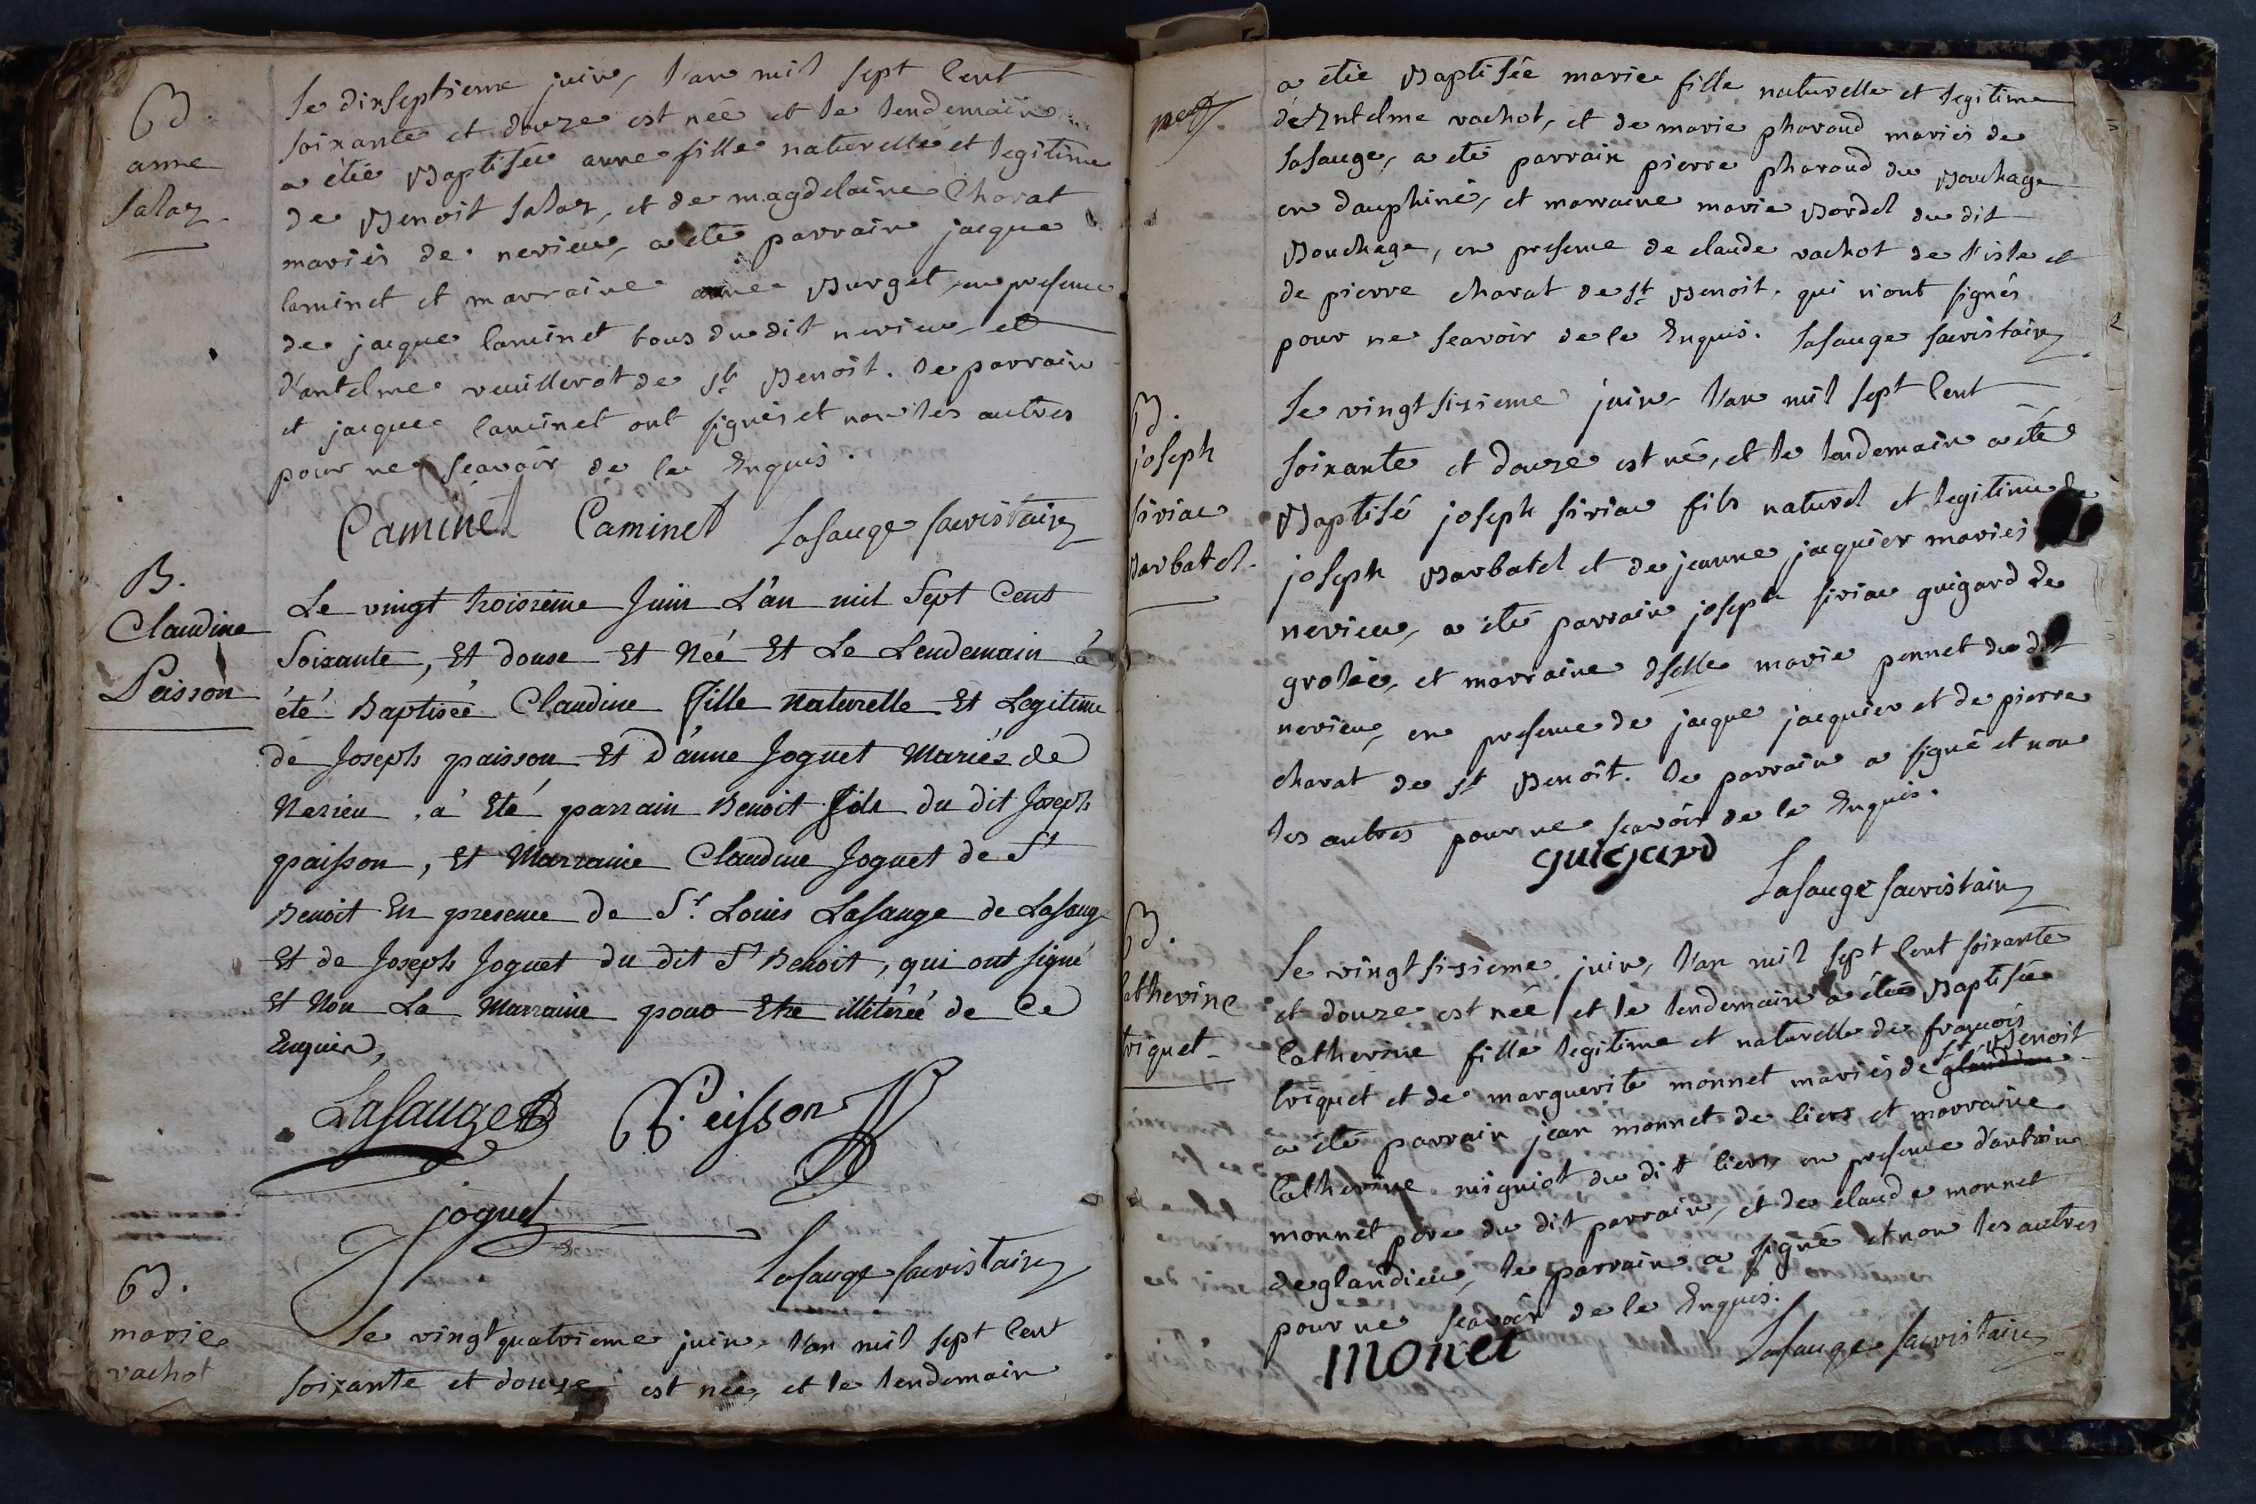 B.
anne
salaz
Le dixseptieme juin, l'an mil sept cent
soixante et douze est neé et le lendemain
a étée Baptisée anne fille naturelle et legitime
de Benoit salaz, et de magdelaine Charat
mariés de nerieu, a été parrain jacque
Caminet et marraine anne Burget, en presence
de jacque Caminet tous du dit nerieu, et
d'antelme veuillerot de st Benoit. le parrain
et jacque Caminet ont signés et non les autres
pour ne sçavoir de ce Enquis.
Caminet Caminet Lasauge sacristain
B.
Claudine
Peisson
Le vingt troisieme Juin L'an mil Sept Cent
Soixante, Et douse Et Néé Et Le Lendemain à
été Baptiséé Claudine Fille Naturelle Et Legitime
de Joseph paisson Et D'anne Joguet Mariés de
Nerieu, à Eté parrain Benoit fils du dit Joseph
paisson, Et Marraine Claudine Joguet de St
Benoit En presence de Sr. Louis Lasauge de Lasauge
Et de Joseph Joguet du dit St Benoit, qui ont signé
Et Non La Marraine pour Etre illiteréé de Ce
Enquis,
Lasauge B. Peisson
joguet
Lasauge sacristain
B.
marie
vachot
Le vingt quatrieme juin l'an mil sept cent
soixante et douze est née, et le lendemain
a étée Baptisée marie fille naturelle et legitime
d'Entelme vachot, et de marie pharaud mariés de
lasauge, a été parrain pierre pharaud du Bouchage
en dauphiné, et marraine marie Bordel du dit
Bouchage, en presence de claude vachot de l'isle et
de pierre charat de st Benoit. qui n'ont signés
pour ne scavoir de ce Enquis. Lasauge sacristain
B.
joseph
siriac
Barbatel.
Le vingt sixieme juin l'an mil sept cent
soixante et douze est né, et le lendemain a été
Baptisé joseph siriac fils naturel et legitime de
joseph Barbatel et de jeanne jacquier mariés
nerieu, a été parrain joseph siriac guigard de
groleé, et marraine dselle marie ponnet du dit
nerieu, en presence de jacque jacquier et de pierre
charat de st Benoit. le parrain a signé et non
les autres pour ne scavoir de ce Enquis.
guigard
Lasauge sacristain
B.
catherine
triquet
Le vingt sixieme juin, l'an mil sept cent soixante
et douze est née et le lendemain a étée Baptisée
Catherine fille legitime et naturelle de françois
triquet et de marguerite monnet mariés de glandieu st Benoit
a été parrain jean monnet de liers et marraine
Catherine migniot du dit liers, en presence d'antoine
monnet pere du dit parrain, et de claude monnet
de glandieu, le parrain a signé et non les autres
pour ne scavoir de ce Enquis.
monet
Lasauge sacristain